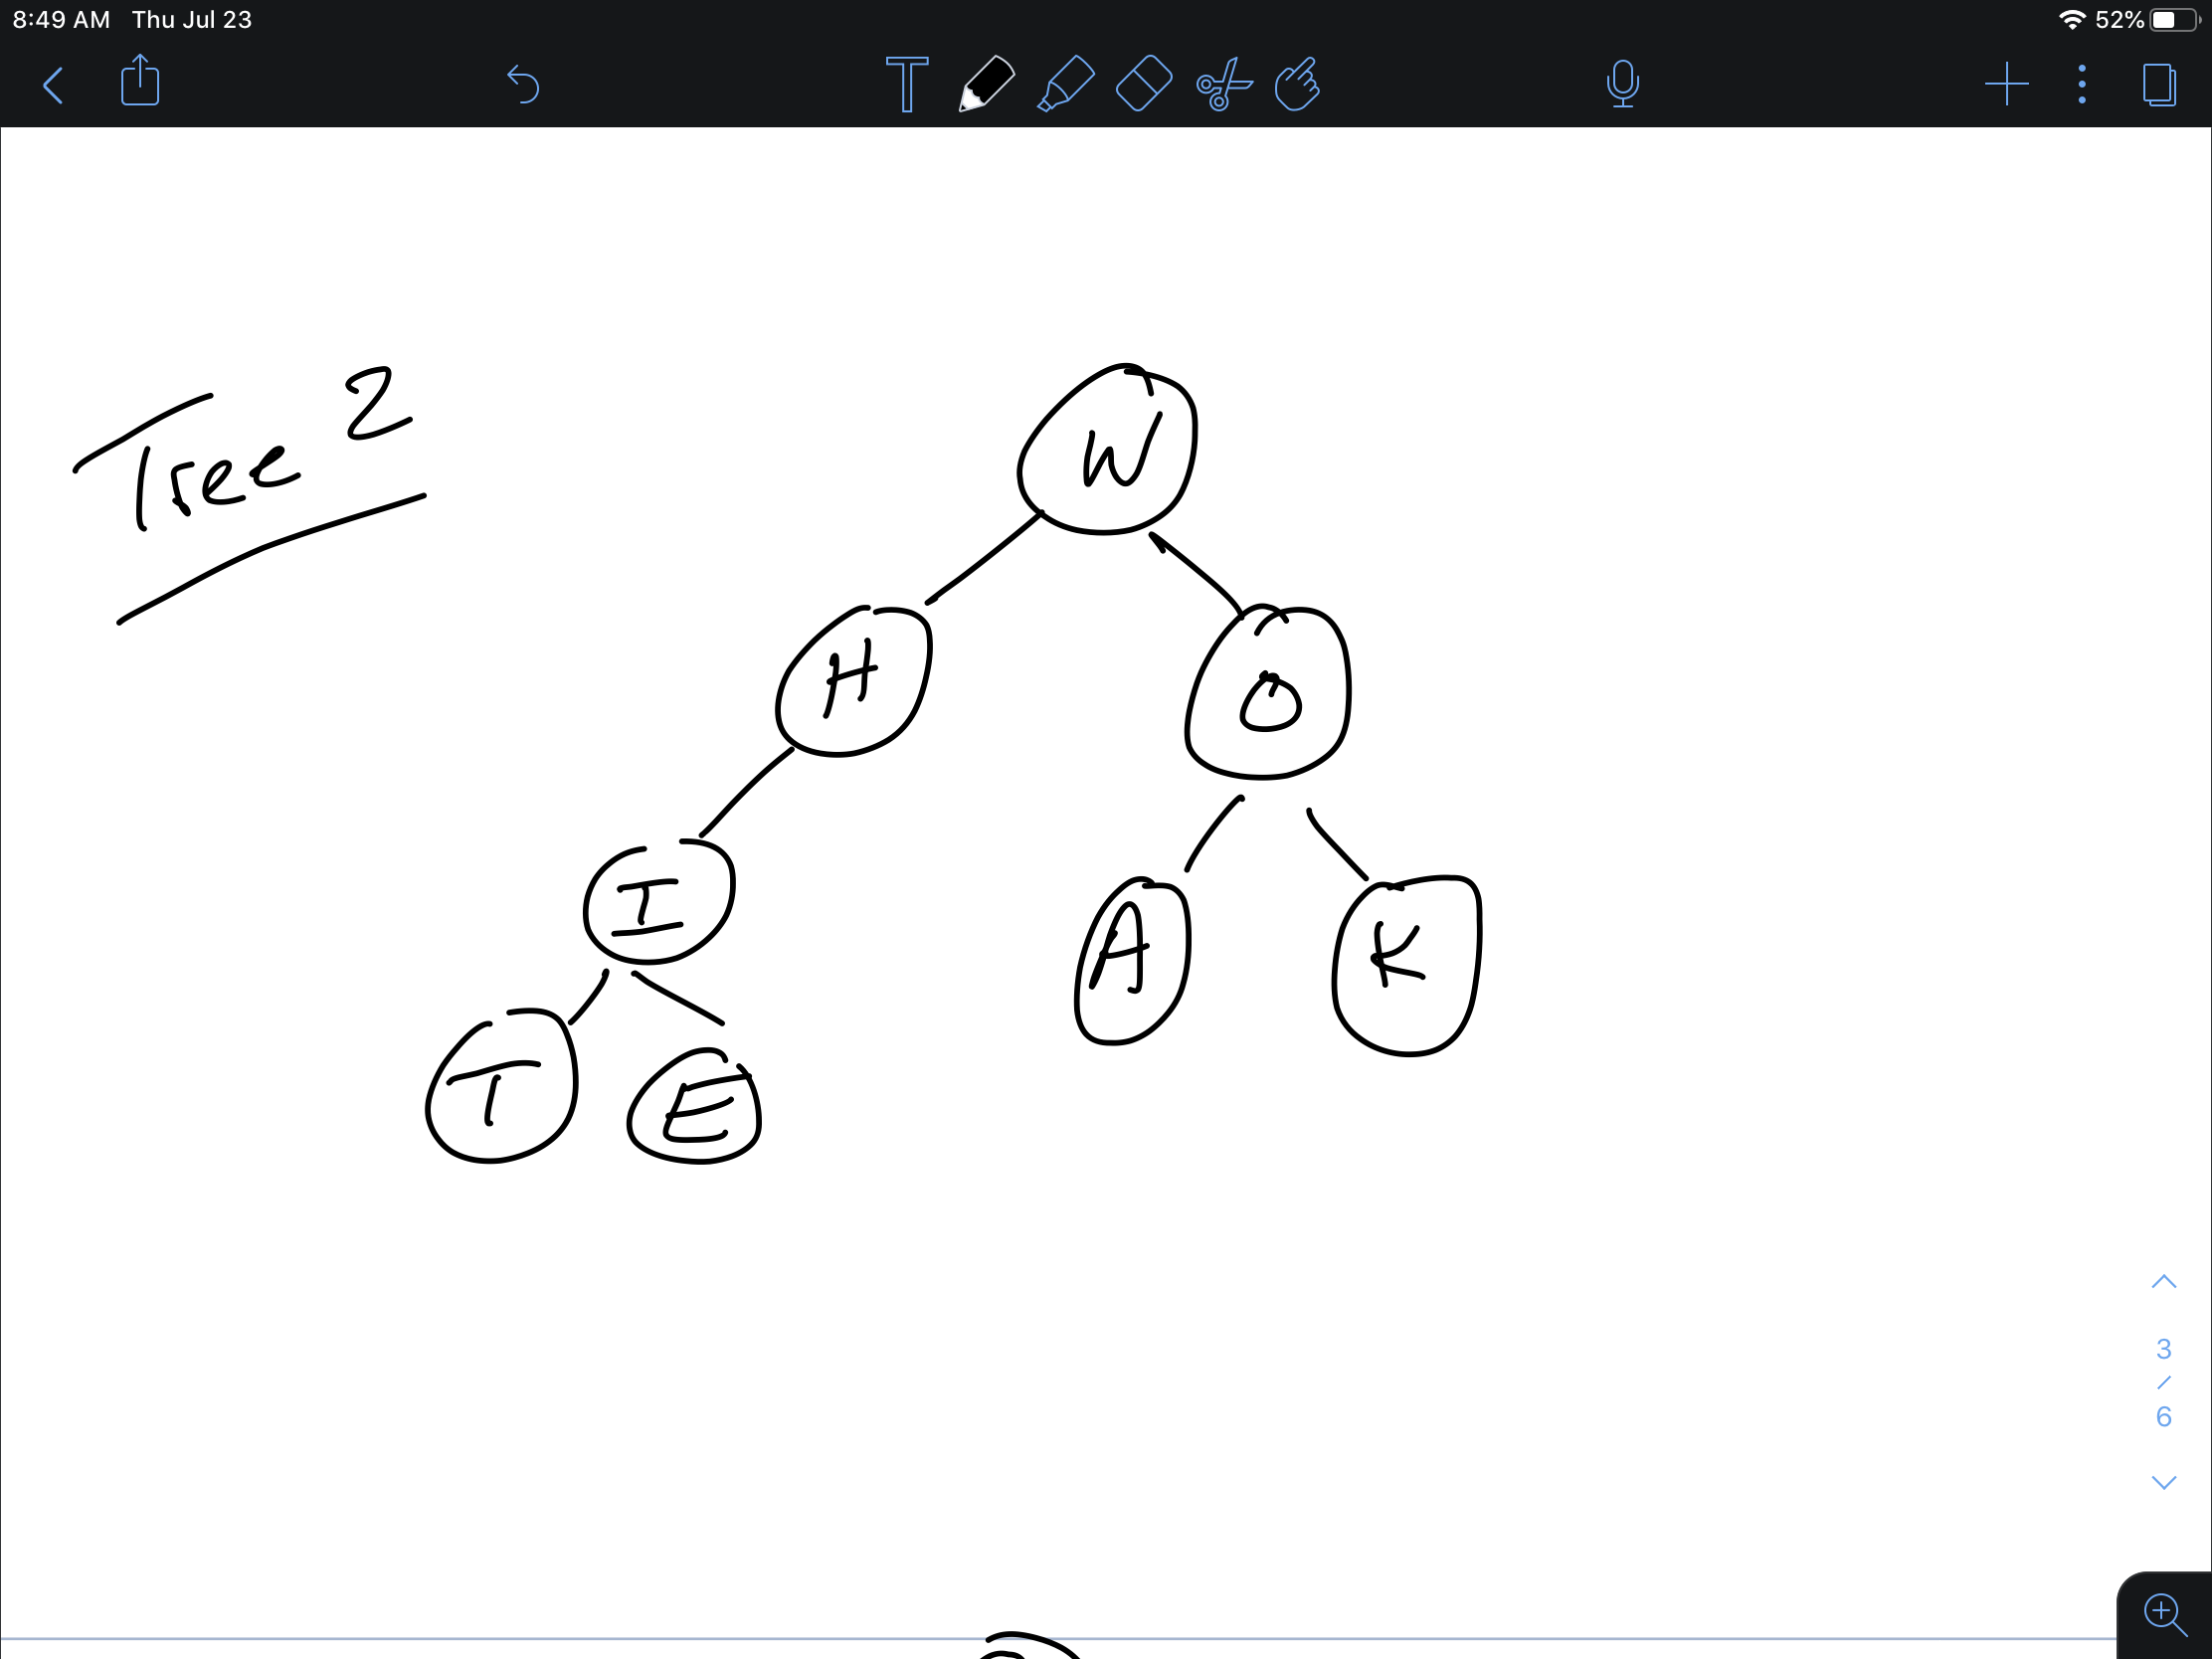 8:49 AM Thu Jul 23
52%
T
Tree 2
W
H
O
I
A
K
T
E
3
/
6